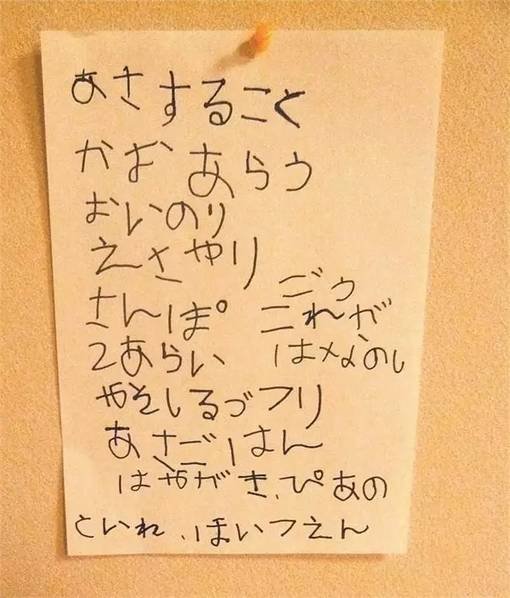 あさすること
かお あらう
おいのり
えさやり
さんぽ
2あらい
ごう
これが
はなのし
やそしるづフリ
あさごはん
はやがき、ぴあの
といれ、ほいつえん